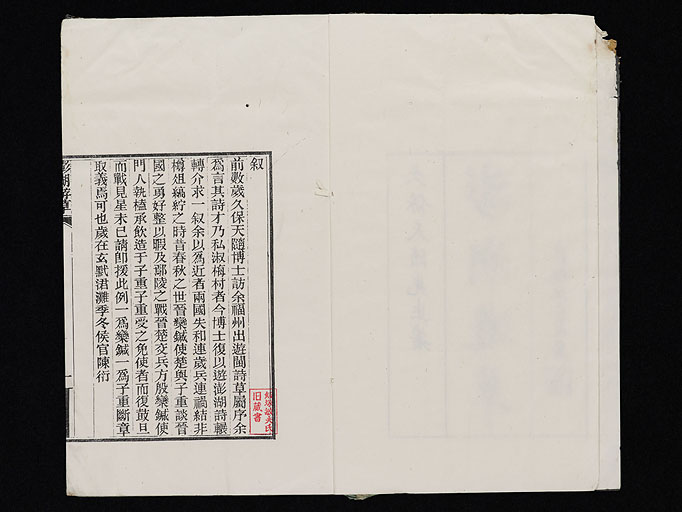 叙
前數歲久保天隨博士訪余福州出遊閩詩草屬序余
爲言其詩才乃私淑梅村者今博士復以遊澎湖詩輾
轉介求一叙余以爲近者兩國失和連歲兵連禍結非
樽俎縞紵之時昔春秋之世晉欒鍼使楚與子重談晉
國之勇好整以暇及鄢陵之戰晉楚交兵方殷欒鍼使
門人執榼承飲造于子重子重受之免使者而復鼓旦
而戰見星未已請卽援此例一爲欒鍼一爲子重斷章
取義焉可也歲在玄黓涒灘季冬侯官陳衍
澎湖游草
一
舊藏書